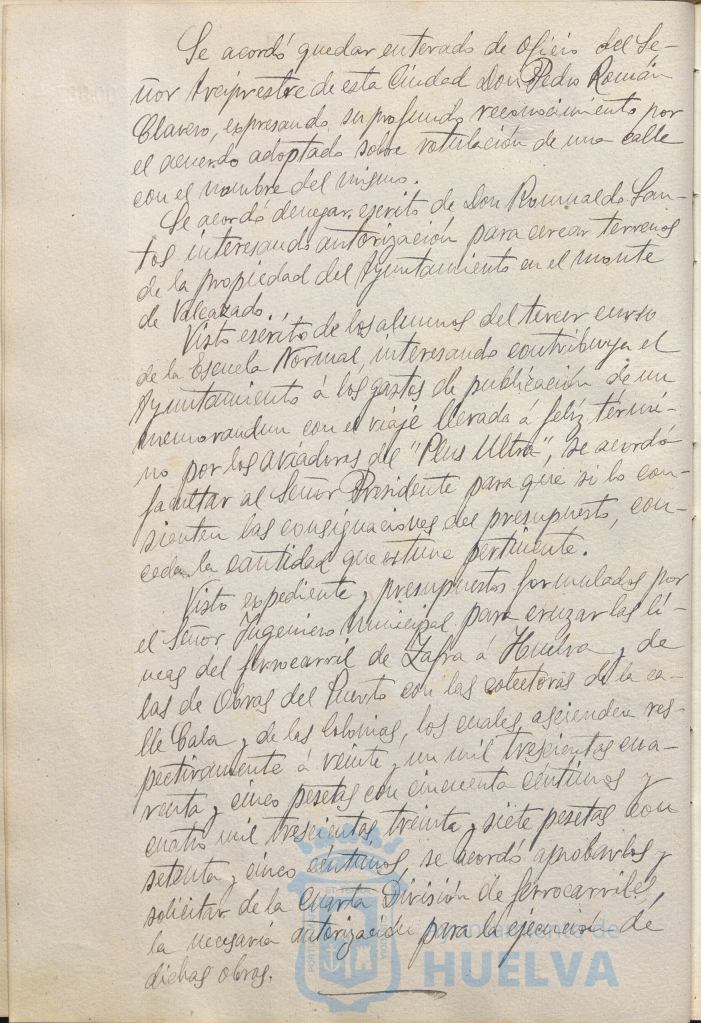 Se acordó quedar enterado de oficio del Se-
ñor Arcipreste de esta Ciudad Don Pedro Román
Clavero, expresando su profundo reconocimiento por
el acuerdo adoptado sobre rotulación de una calle
con el nombre del mismo.
Se acordó denegar escrito de Don Romualdo San-
tos interesando autorización para cercar terrenos
de la propiedad del Ayuntamiento en el monte
de Valcazado.
Visto escrito de los alumnos del tercer curso
de la Escuela Normal, interesando contribuya el
Ayuntamiento á los gastos de publicación de un
memorandun con el viaje llevado á feliz térmi-
no por los aviadores del "Plus Ultra", se acordó
facultar al Señor Presidente para que si lo con-
sienten las consignaciones del presupuesto, con-
ceda la cantidad que estime pertinente.
Visto expediente y presupuestos formulados por
el Señor Ingeniero Municipal para cruzar las lí-
neas del ferrocarril de Zafra á Huelva y de
las de Obras del Puerto con las colectoras de la ca-
lle Cala y de las Colonias, los cuales ascienden res-
pectivamente á veinte y un mil trescientas cua-
renta y cinco pesetas con cincuenta céntimos y
cuatro mil trescientas treinta y siete pesetas con
setenta y cinco céntimos, se acordó aprobarlos y
solicitar de la Cuarta División de ferrocarriles,
la necesaria autorización para la ejecución de
dichas obras.
Ayuntamiento de
HUELVA